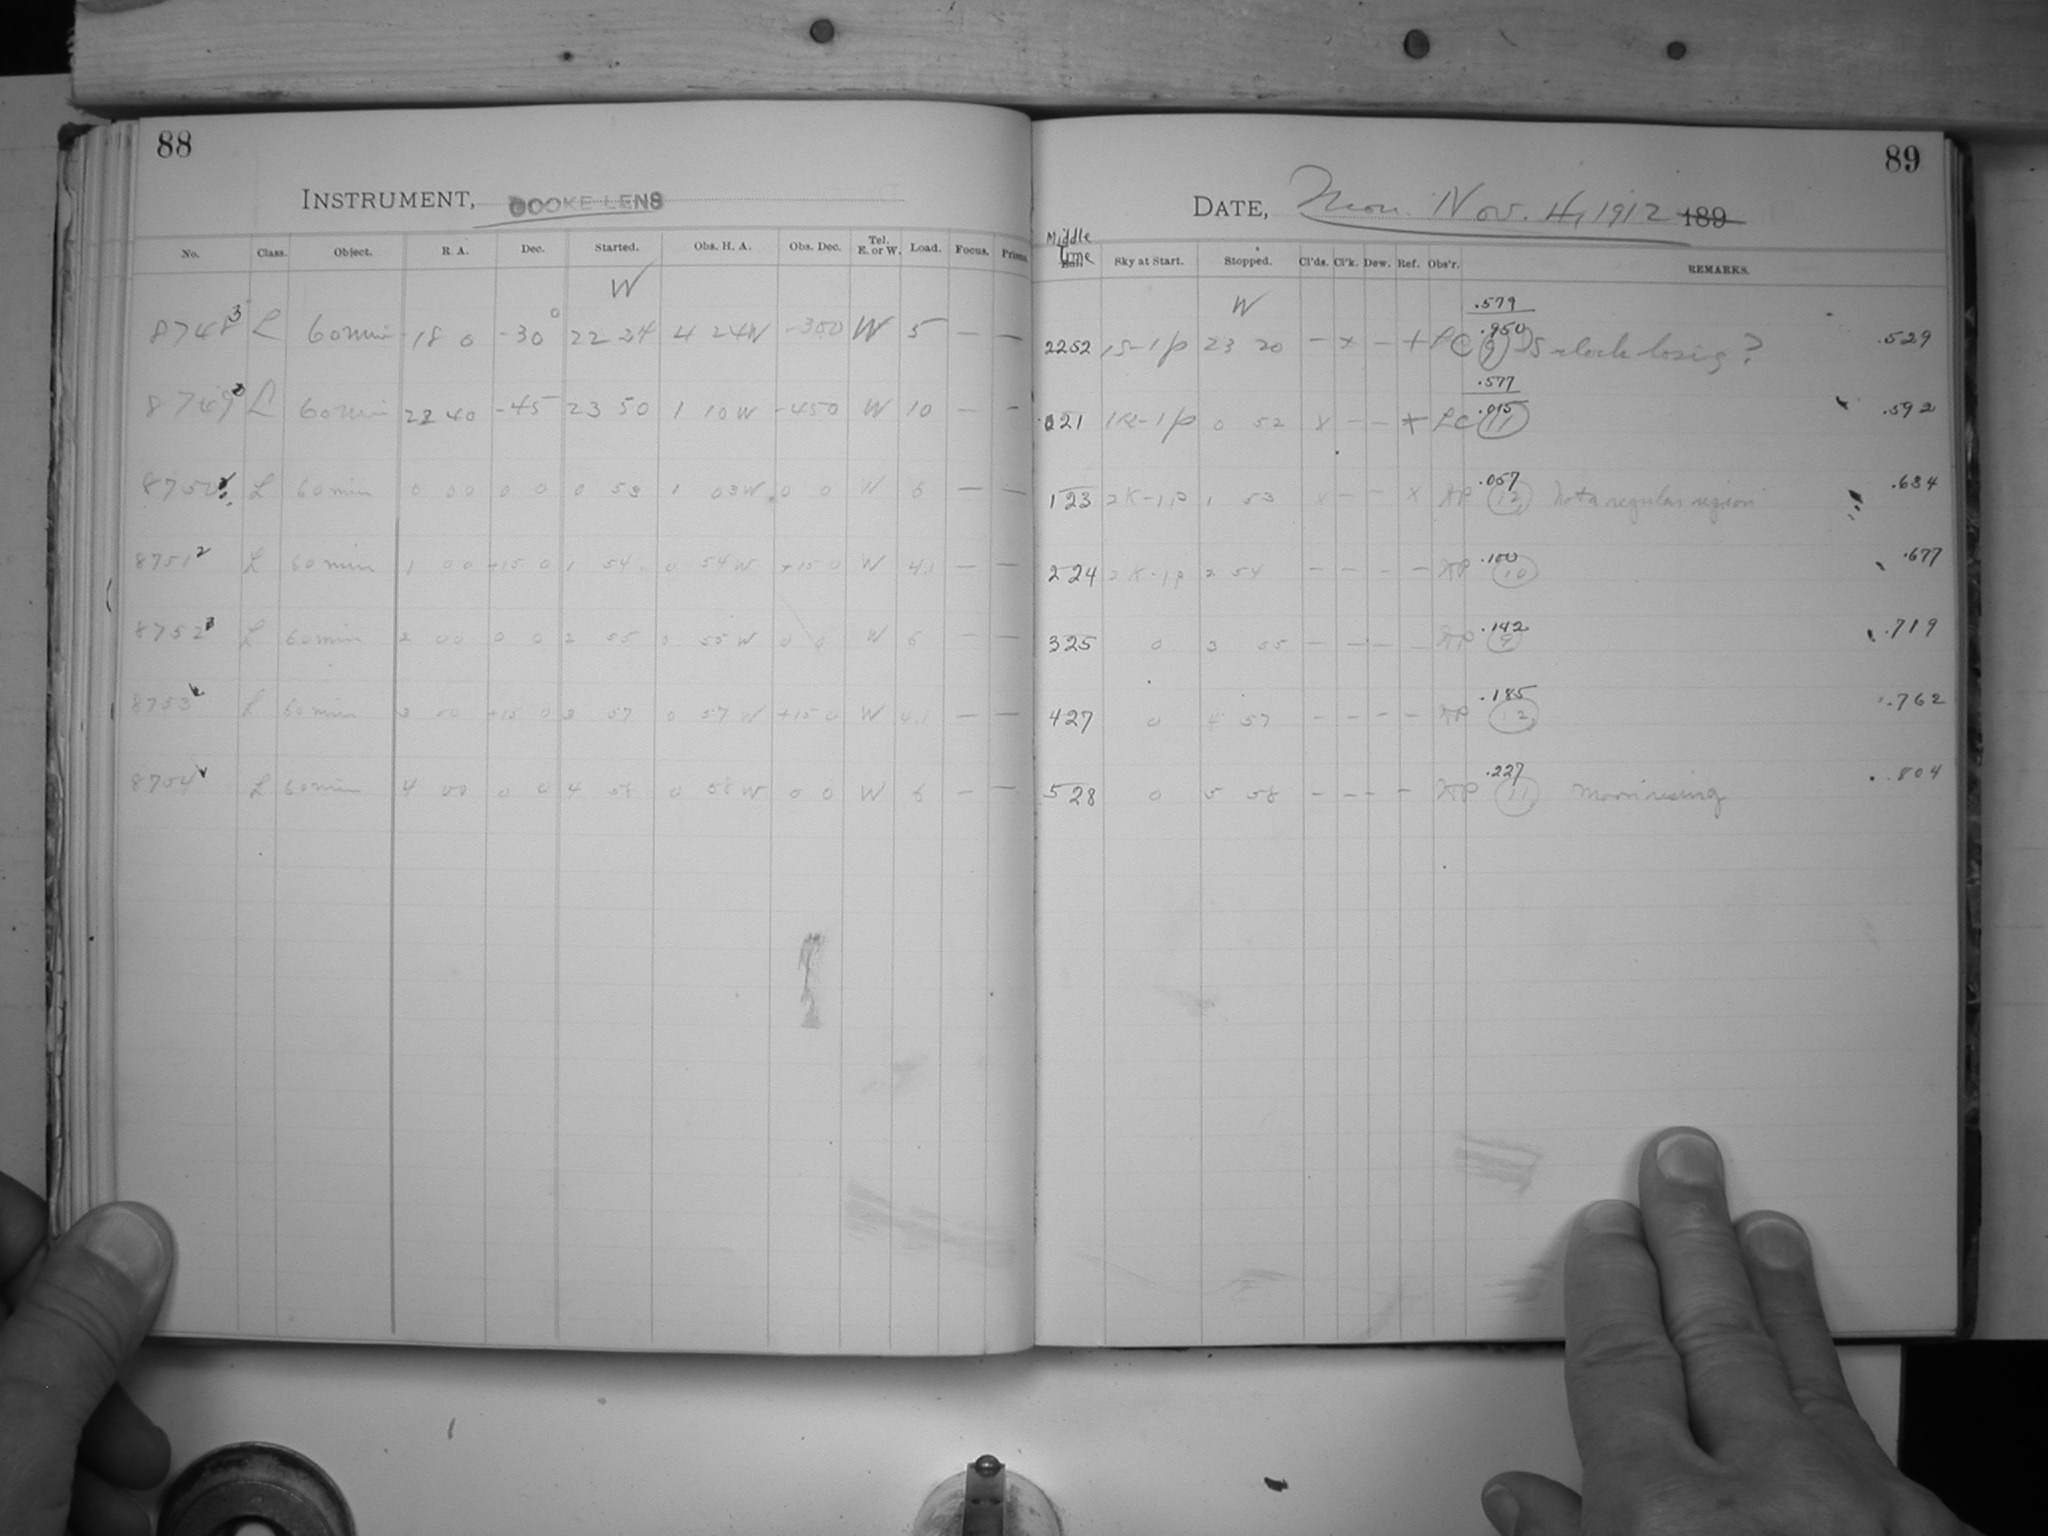 88
INSTRUMENT, COOKE LENS
No. Class. Object. R. A. Dec. Started. Obs. H. A. Obs. Dec. Tel. E. or W. Load. Focus. Prisms.
W
8748 3 L 60 min 18 0 -30 0 22 24 4 24 W -300 W 5 — —
8749 L 60 min 22 40 -45 23 50 1 10 W -450 W 10 — —
8750 L 60 min 0 00 0 0 0 53 1 03 W 0 0 W 6 — —
8751 2 L 60 min 1 00 +15 0 1 54 0 54 W +15 0 W 4.1 — —
8752 L 60 min 2 00 0 0 2 55 0 55 W 0 0 W 6 — —
8753 L 60 min 3 00 +15 0 3 57 0 57 W +15 0 W 4.1 — —
8754 L 60 min 4 00 0 0 4 58 0 58 W 0 0 W 6 — —
89
DATE, Mon. Nov. 4, 1912 189
Middle Time Sky at Start. Stopped. Cl'ds. Cl'k. Dew. Ref. Obs'r. REMARKS.
W .579
2252 1S-1p 23 20 — x — + LC .950 (9) S clock losing? .529
.577
021 1K-1p 0 52 x — — + LC .015 (11) .592
123 2K-1p 1 53 x — — x .057 (12) Not a regular region .634
224 2K-1p 2 54 — — — — .100 (10) .677
325 0 3 55 — — — — .142 (9) .719
427 0 4 57 — — — — .185 (12) .762
528 0 5 58 — — — — .227 (11) Moon rising .804